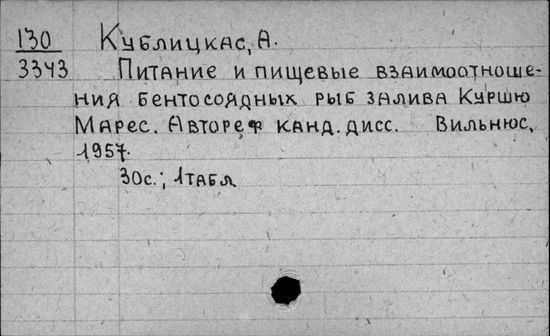 130 Кублицкас, А.
3343 Питание и пищевые взаимоотноше-
ния бентосоядных рыб залива Куршю
Марес. Автореф канд. дисс. Вильнюс,
1957.
30с.; 1табл